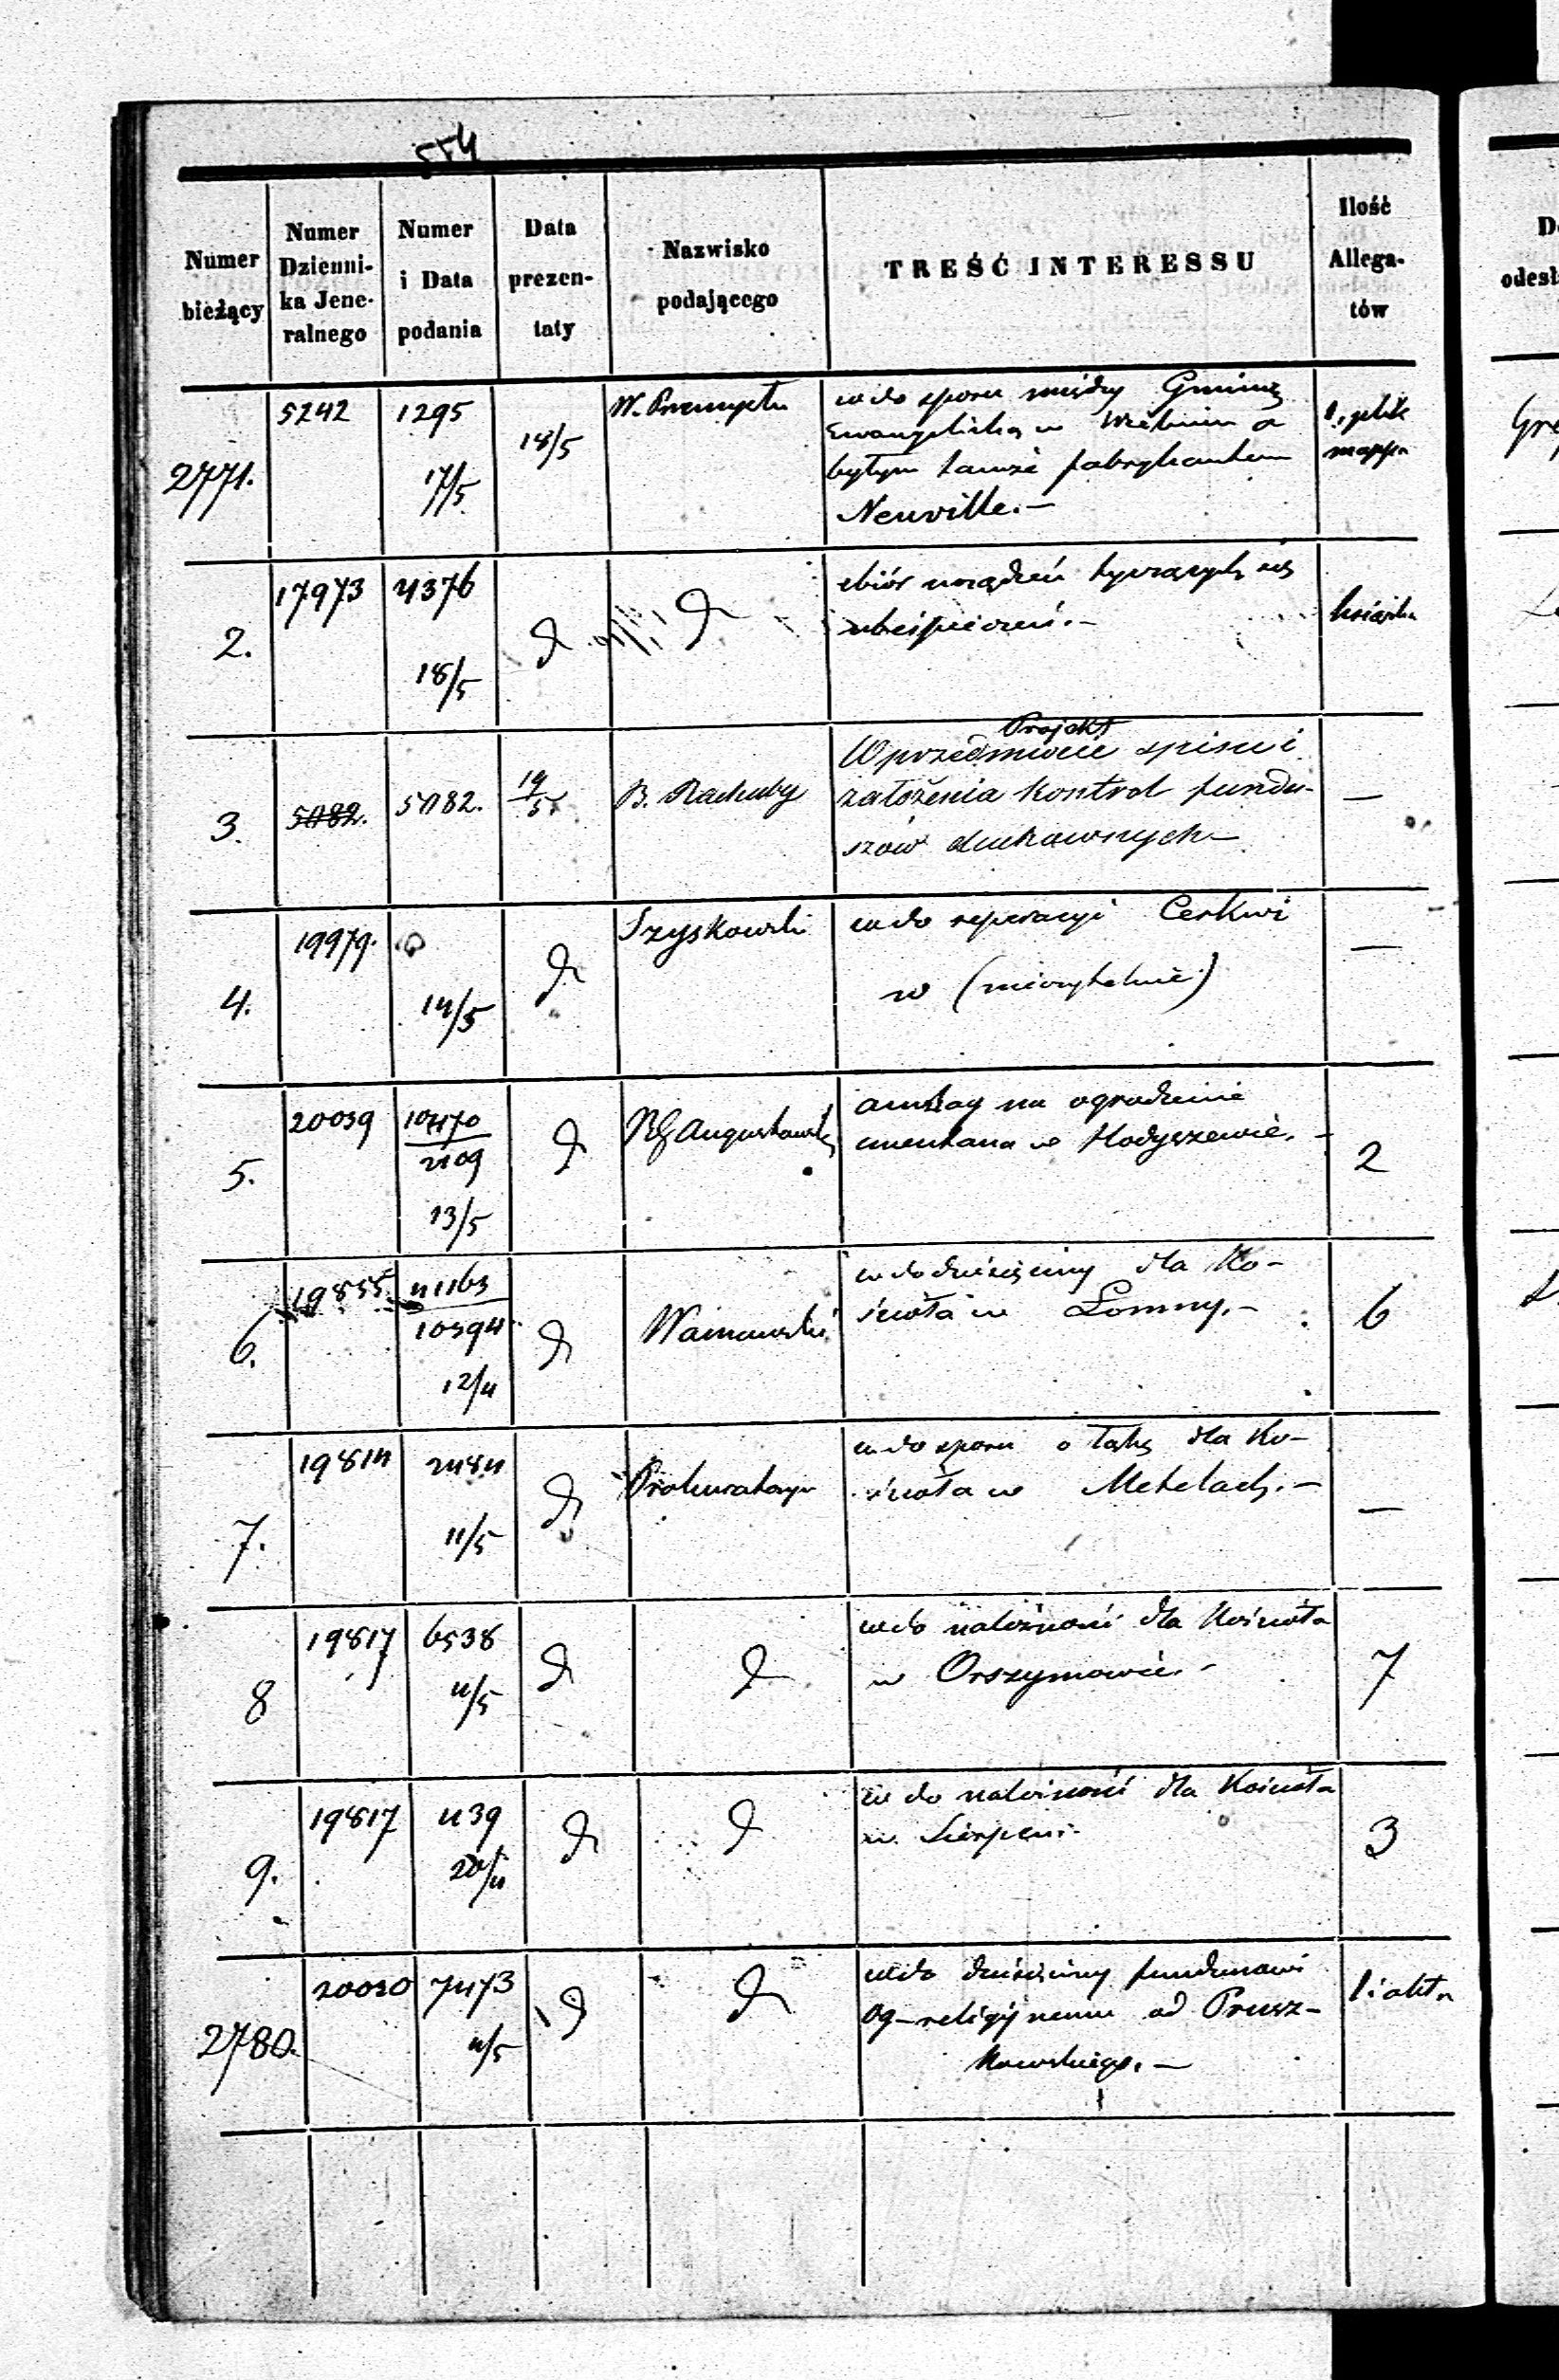 554
Numer bieżący
Numer Dzienni-ka Jene-ralnego
Numer i Data podania
Data prezen-taty
Nazwisko podającego
TREŚĆ INTERESSU
Ilość Allega-tów
2771. 5242 1295 17/5 18/5 W. Przemysłu
wdo sporu między Gminą
Ewangelicką w a
byłym tamże fabrykantem
Neuville.—
1, plik
mappa
2. 17973 4376 18/5
zbiór urządzeń tyczących się
ubeśpieczeń.—
książka
3. 5082. 5082. 19/5 B. Rachuby
Projekt
W przedmiocie spisu i
założenia kontrol fundu-
szów duchownych—
—
4. 19979. 14/5 Szyskowski
wdo reperacyi Cerkwi
w (nieczytelnie)
—
5. 20039 10470/2109 13/5 RG Augustowski
anszlag na ogrodzenie
cmentarza w Hodyszewie.—
2
6. 19855 41163/10394 12/4
wdo dziesięciny dla Ko-
ścioła w Łomny.—
6
7. 19814 2484 11/5 Prokuratorya
wdo sporu o łąkę dla Ko-
ścioła w Metelach.—
—
8 19817 6538 4/5
wdo należności dla Kościoła
w Orszymowie.—
7
9. 19817 439 20/4
wdo należności dla Kościoła
w Sierpcu.
3
2780. 20030 7473 4/5
wdo dziesięciny funduszowi
og—religijnemu od Prusz-
kowskiego.—
1: akta